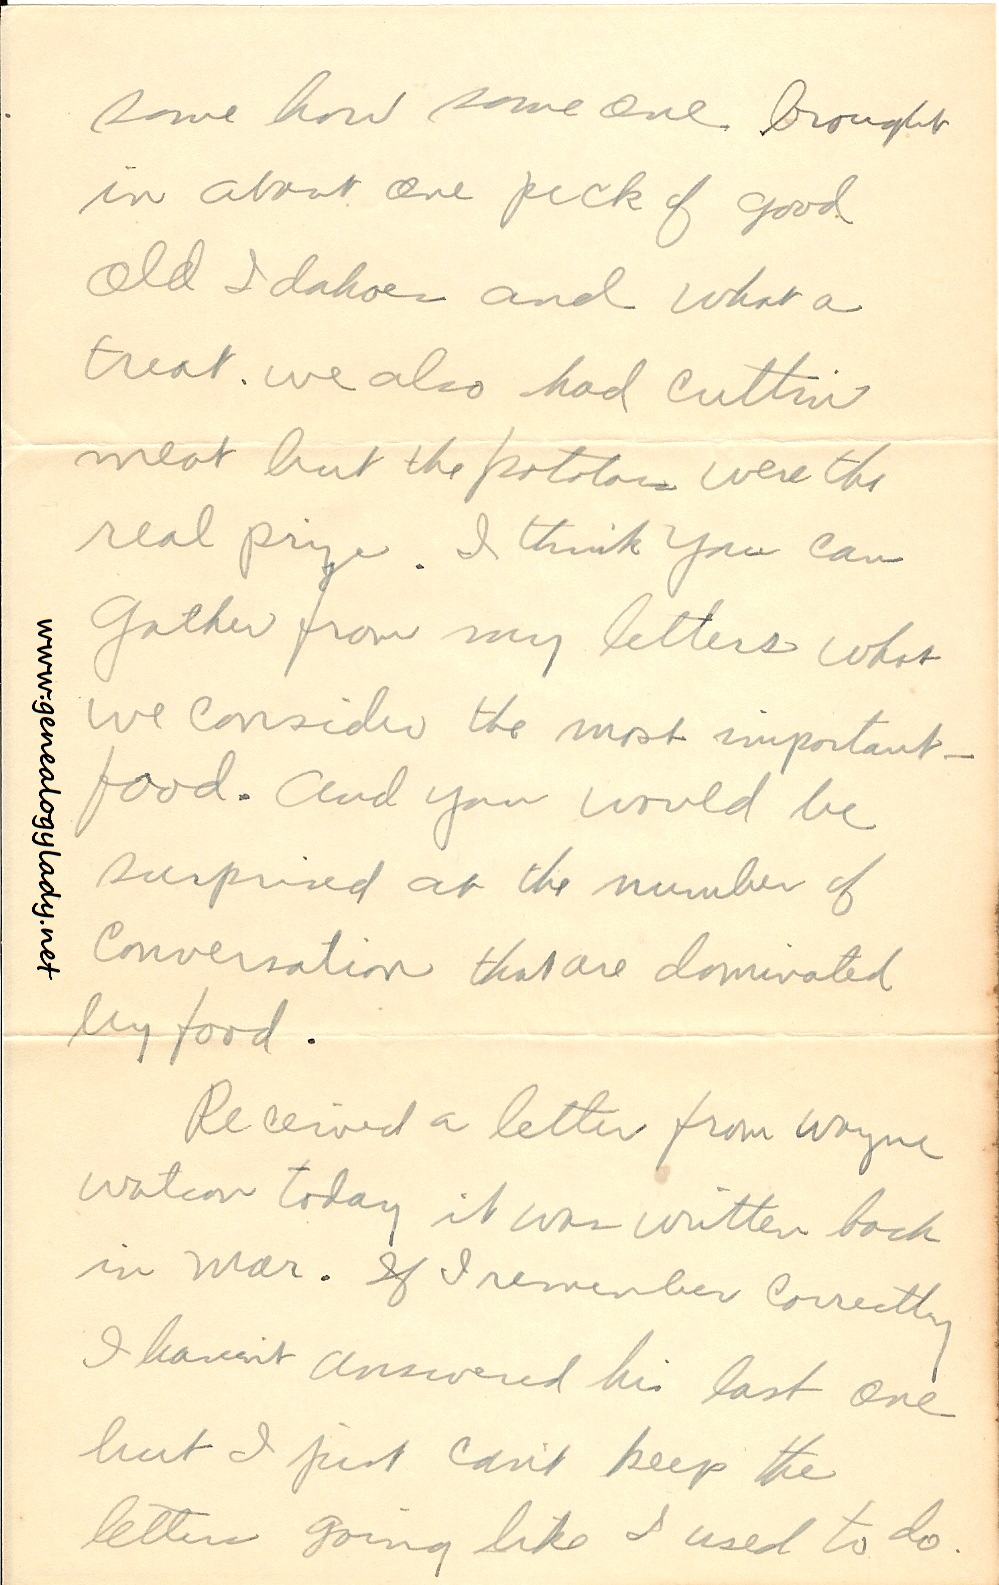 some how some one brought
in about one pick of good
old Idahoes and what a
treat. we also had cuttin
meat but the potatoes were the
real prize. I think you can
gather from my letters what
we consider the most important
food. and you would be
surprised at the number of
conversation that are dominated
by food.
Received a letter from Wayne
Watson today it was written back
in Mar. If I remember correctly
I haven't answered his last one
but I just can't keep the
letters going like I used to do.
www.genealogylady.net